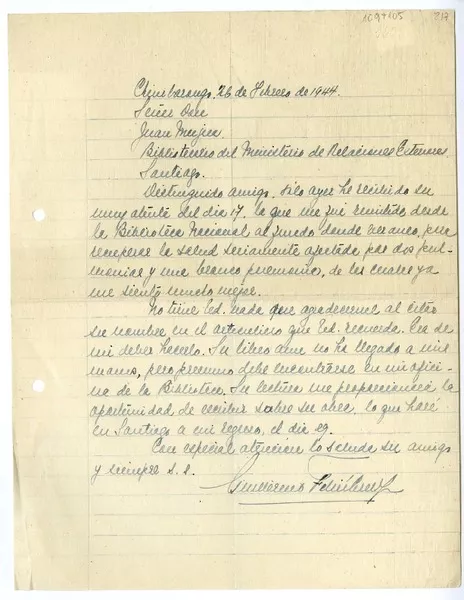 169405 217
Chimbarongo, 26 de Febrero de 1944.
Señor Don
Juan Mujica
Bibliotecario del Ministerio de Relaciones Exteriores
Santiago.
Distinguido amigo: Sólo ayer he recibido su
muy atenta del día 17, la que me fué remitida desde
la Biblioteca Nacional al fundo donde veraneo, para
recuperar la salud seriamente afectada por dos pul-
monías y una bronco pneumonia, de las cuales ya
me siento mucho mejor.
No tiene Ud. nada que agradecerme al citar
su nombre en el articulillo que Ud. recuerda. Era de
mi deber hacerlo. Su libro aun no ha llegado a mis
manos, pero presumo debe encontrarse en mi ofici-
na de la Biblioteca. Su lectura me proporcionará la
oportunidad de escribir sobre su obra, lo que haré
en Santiago a mi regreso, el día 29.
Con especial atención lo saluda su amigo
y siempre s. s.
Guillermo Feliú Cruz